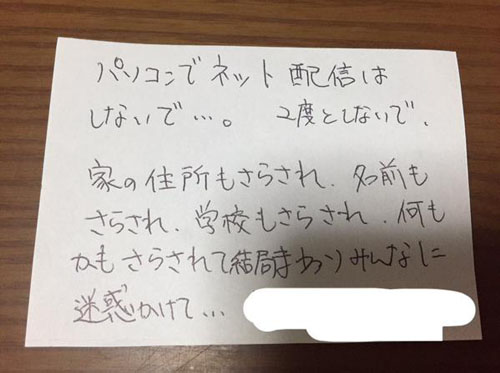 パソコンでネット配信は
しないで…。 2度としないで、
家の住所もさらされ、名前も
さらされ、学校もさらされ、何も
かもさらされて結局まわりみんなに
迷惑かけて…